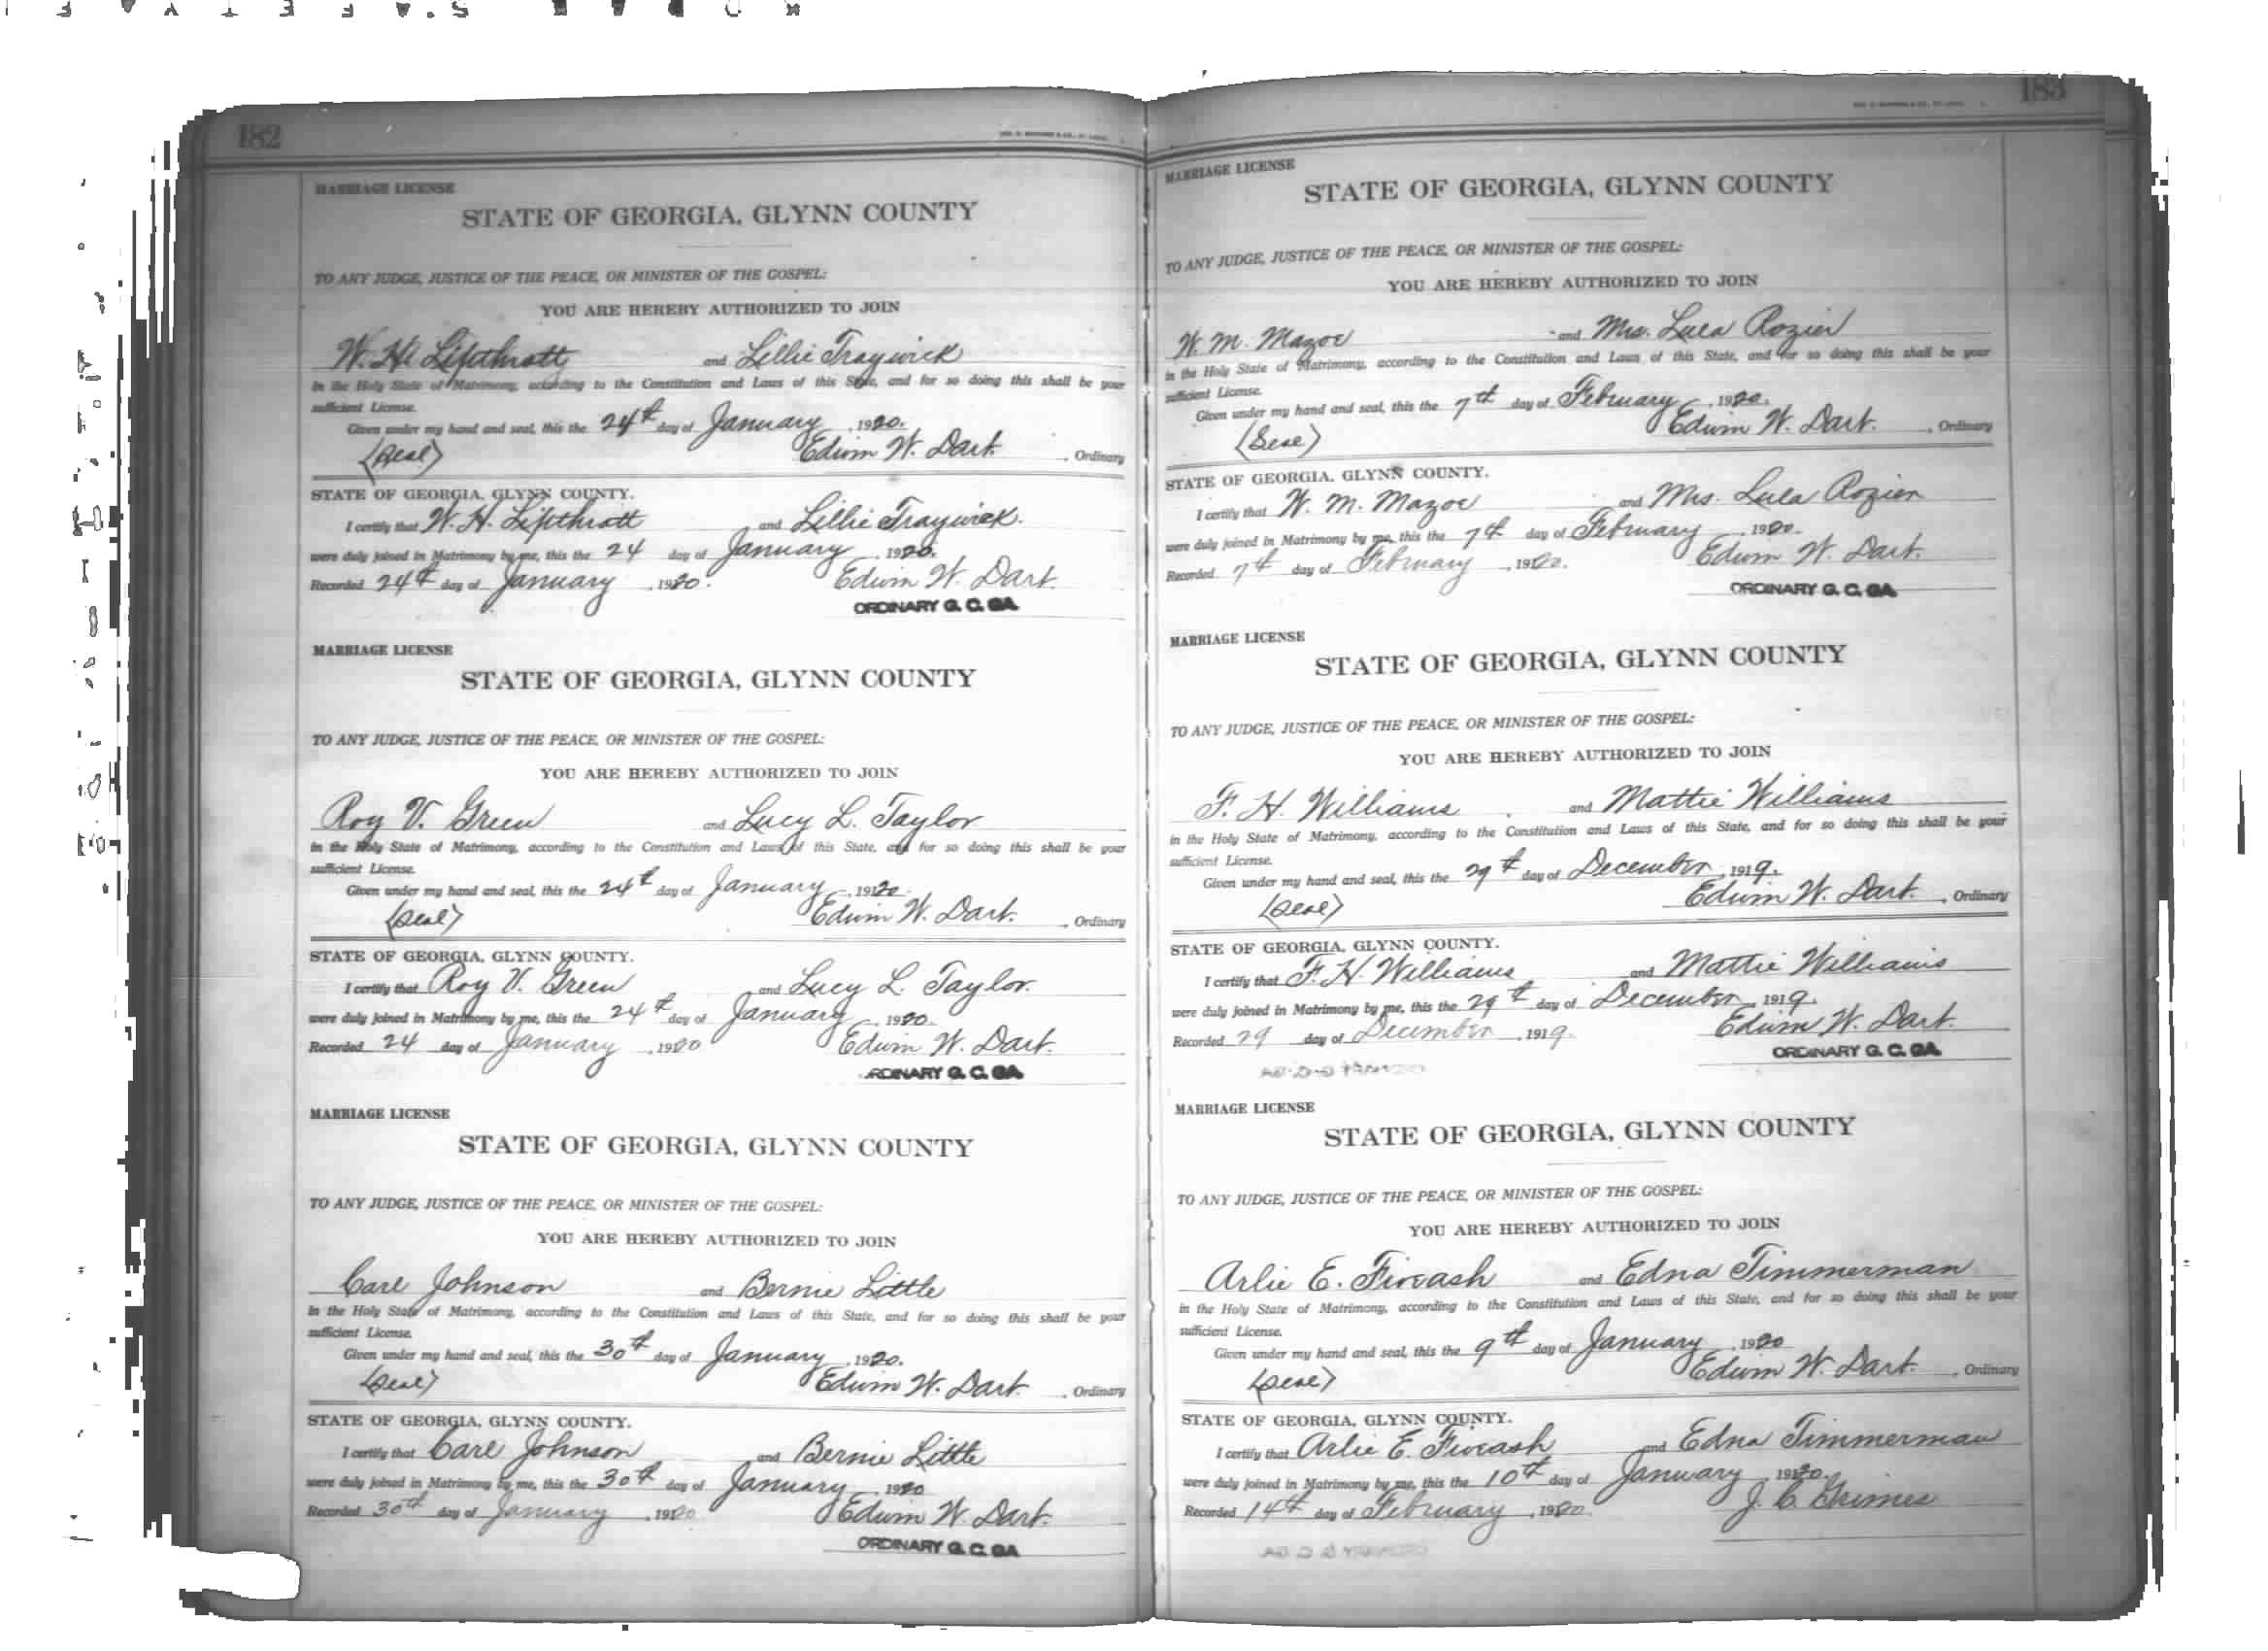 182
MARRIAGE LICENSE
STATE OF GEORGIA, GLYNN COUNTY
TO ANY JUDGE, JUSTICE OF THE PEACE, OR MINISTER OF THE GOSPEL:
YOU ARE HEREBY AUTHORIZED TO JOIN
W. H. Lipthrott and Lillie Traywick
in the Holy State of Matrimony, according to the Constitution and Laws of this State, and for so doing this shall be your
sufficient License.
Given under my hand and seal, this the 24th day of January, 1920.
(Seal) Edwin W. Dart. , Ordinary
STATE OF GEORGIA, GLYNN COUNTY.
I certify that W. H. Lipthrott and Lillie Traywick.
were duly joined in Matrimony by me, this the 24 day of January, 1920.
Recorded 24th day of January, 1920. Edwin W. Dart.
ORDINARY G. C. GA.
MARRIAGE LICENSE
STATE OF GEORGIA, GLYNN COUNTY
TO ANY JUDGE, JUSTICE OF THE PEACE, OR MINISTER OF THE GOSPEL:
YOU ARE HEREBY AUTHORIZED TO JOIN
Roy V. Green and Lucy L. Taylor
in the Holy State of Matrimony, according to the Constitution and Laws of this State, and for so doing this shall be your
sufficient License.
Given under my hand and seal, this the 24th day of January, 1920.
(Seal) Edwin W. Dart. , Ordinary
STATE OF GEORGIA, GLYNN COUNTY.
I certify that Roy V. Green and Lucy L. Taylor.
were duly joined in Matrimony by me, this the 24th day of January, 1920.
Recorded 24 day of January, 1920 Edwin W. Dart.
ORDINARY G. C. GA.
MARRIAGE LICENSE
STATE OF GEORGIA, GLYNN COUNTY
TO ANY JUDGE, JUSTICE OF THE PEACE, OR MINISTER OF THE GOSPEL:
YOU ARE HEREBY AUTHORIZED TO JOIN
Carl Johnson and Bernie Little
in the Holy State of Matrimony, according to the Constitution and Laws of this State, and for so doing this shall be your
sufficient License.
Given under my hand and seal, this the 30th day of January, 1920.
(Seal) Edwin W. Dart. , Ordinary
STATE OF GEORGIA, GLYNN COUNTY.
I certify that Carl Johnson and Bernie Little
were duly joined in Matrimony by me, this the 30th day of January, 1920
Recorded 30th day of January, 1920 Edwin W. Dart.
ORDINARY G. C. GA
183
MARRIAGE LICENSE
STATE OF GEORGIA, GLYNN COUNTY
TO ANY JUDGE, JUSTICE OF THE PEACE, OR MINISTER OF THE GOSPEL:
YOU ARE HEREBY AUTHORIZED TO JOIN
W. M. Mazoe and Mrs. Lula Rozier
in the Holy State of Matrimony, according to the Constitution and Laws of this State, and for so doing this shall be your
sufficient License.
Given under my hand and seal, this the 7th day of February, 1920.
(Seal) Edwin W. Dart. , Ordinary
STATE OF GEORGIA, GLYNN COUNTY.
I certify that W. M. Mazoe and Mrs. Lula Rozier
were duly joined in Matrimony by me, this the 7th day of February, 1920.
Recorded 7th day of February, 1920. Edwin W. Dart.
ORDINARY G. C. GA.
MARRIAGE LICENSE
STATE OF GEORGIA, GLYNN COUNTY
TO ANY JUDGE, JUSTICE OF THE PEACE, OR MINISTER OF THE GOSPEL:
YOU ARE HEREBY AUTHORIZED TO JOIN
F. H. Williams and Mattie Williams
in the Holy State of Matrimony, according to the Constitution and Laws of this State, and for so doing this shall be your
sufficient License.
Given under my hand and seal, this the 29th day of December, 1919.
(Seal) Edwin W. Dart. , Ordinary
STATE OF GEORGIA, GLYNN COUNTY.
I certify that F. H. Williams and Mattie Williams
were duly joined in Matrimony by me, this the 29th day of December, 1919.
Recorded 29 day of December, 1919. Edwin W. Dart.
ORDINARY G. C. GA.
MARRIAGE LICENSE
STATE OF GEORGIA, GLYNN COUNTY
TO ANY JUDGE, JUSTICE OF THE PEACE, OR MINISTER OF THE GOSPEL:
YOU ARE HEREBY AUTHORIZED TO JOIN
Arlie E. Fiveash and Edna Timmerman
in the Holy State of Matrimony, according to the Constitution and Laws of this State, and for so doing this shall be your
sufficient License.
Given under my hand and seal, this the 9th day of January, 1920
(Seal) Edwin W. Dart. , Ordinary
STATE OF GEORGIA, GLYNN COUNTY.
I certify that Arlie E. Fiveash and Edna Timmerman
were duly joined in Matrimony by me, this the 10th day of January, 1920.
Recorded 14th day of February, 1920. J. C. Grimes